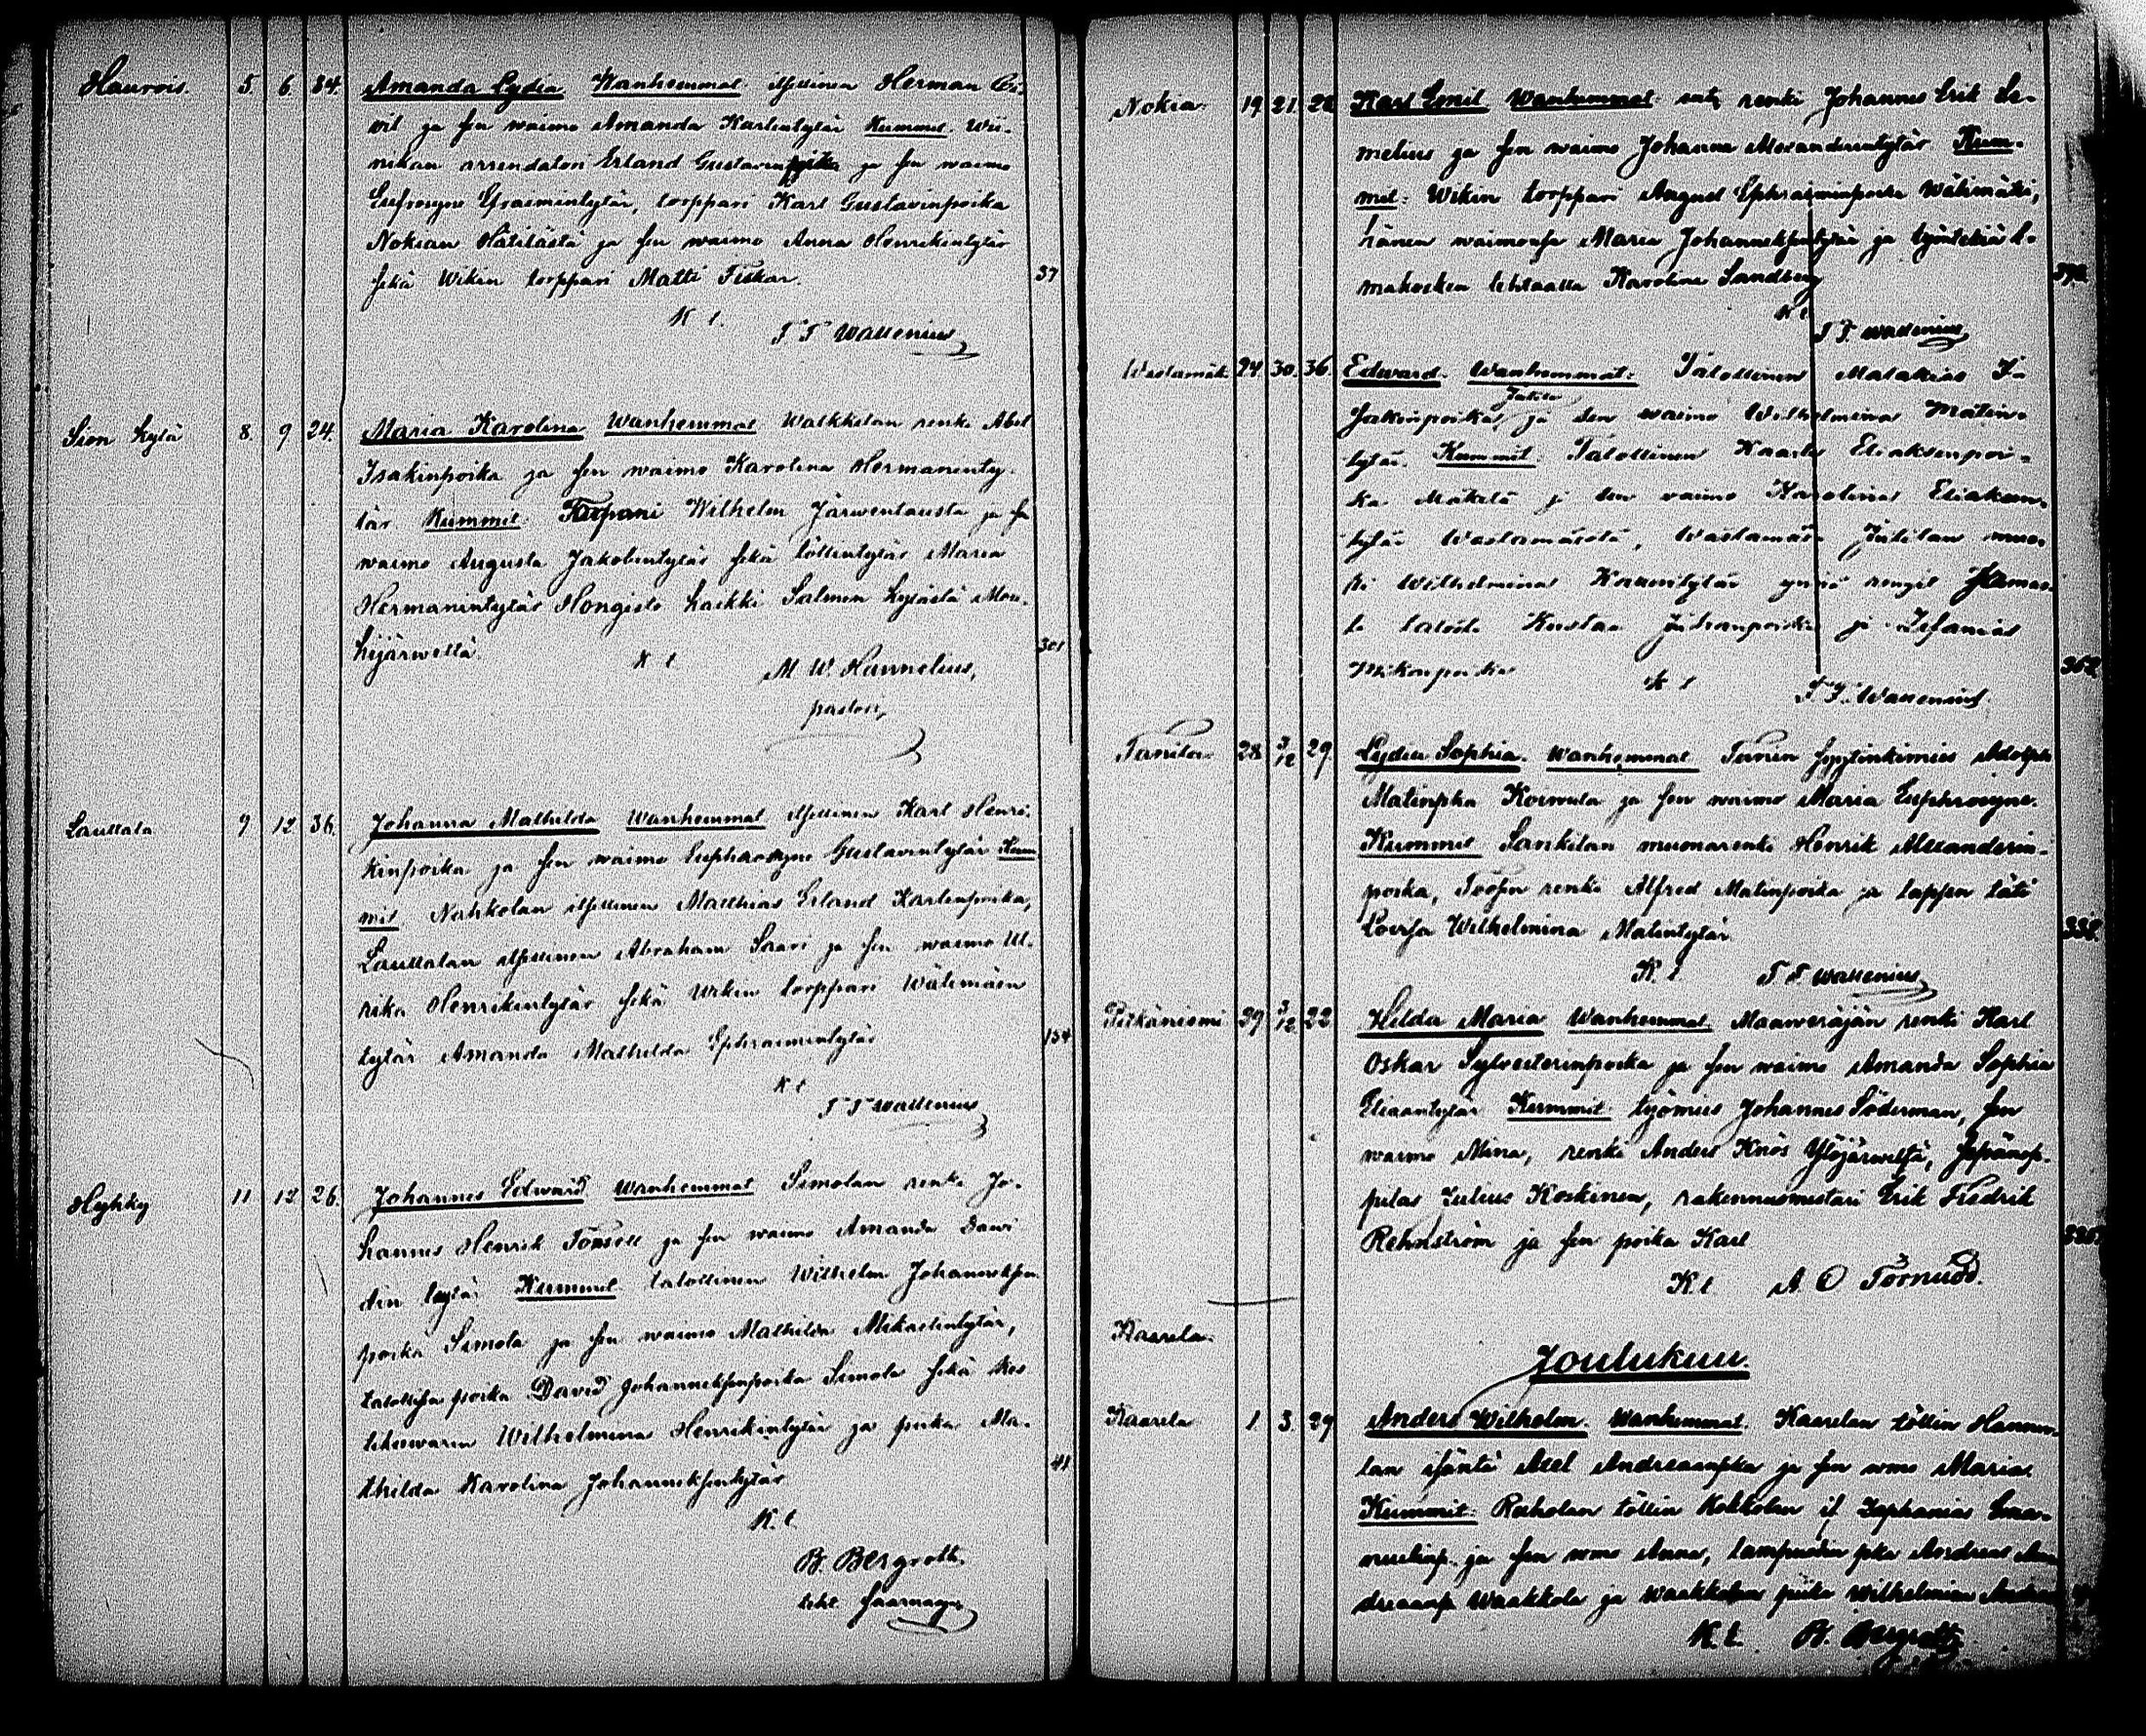 Haurois. 5. 6. 34. Amanda Lydia Wanhemmat itsellinen Herman
wit ja sen waimo Amanda Karlintytär Kummit. Wii-
nikan arrendatori Erland Gustavinpoika ja sen waimo
Eufrosyne Efraimintytär, torppari Karl Gustavinpoika
Nokian Hätilästä ja sen waimo Anna Henrikintytär
sekä Wikin torppari Matti Fiskar. 37
K t.
T T Wallenius
Sion kylä 8. 9 24. Maria Karolina Wanhemmat Walkkilan renki Abel
Isakinpoika ja sen waimo Karolina Hermaninty-
tär Kummit: Wilhelm Järwentausta ja sen
waimo Augusta Jakobintytär sekä töllintytär Maria
Hermanintytär Hongisto kaikki Salmen kylästä Mou-
hijärwellä. 301
K t
M. W. Hannelius,
pastori,
Lauttala 9 12 36. Johanna Mathilda Wanhemmat itsellinen Karl Henri-
kinpoika ja sen waimo Euphrosyne Gustavintytär Kum-
mit Nahkolan itsellinen Matthias Erland Karlinpoika,
Lauttalan itsellinen Abraham Saari ja sen waimo Ul-
rika Henrikintytär sekä Wikin torppari Wälimäen
tytär Amanda Mathilda Ephraimintytär 134
K t
T T Wallenius
Hyhky 11 12 26. Johannes Edward Wanhemmat Simolan renki Jo-
hannes Henrik Forsell ja sen waimo Amanda Dawi
din tytär Kummit talollinen Wilhelm Johanneksen
poika Simola ja sen waimo Mathilda Mikaelintytär,
talollisen poika David Johanneksenpoika Simola sekä kes
tikiwarin Wilhelmina Henrikintytär ja piika Ma-
thilda Karolina Johanneksentytär 41
K. t.
B. Bergroth.
saarnaaja
Nokia 19. 21. 28 Karl Emil Wanhemmat: renki Johannes Erik Se-
melius ja sen waimo Johanna Alexanderintytär Kum-
mit: Wikin torppari August Ephraiminpoika Wälimäki,
hänen waimonsa Maria Johanneksentytär ja työntekiä E-
makosken tehtaalla Karolina Sandberg
K t
T T Wallenius
Wastamäki 24. 30. 36. Edward. Wanhemmat: Talollinen Malakias I-
sakinpoika Jutila ja sen waimo Wilhelmina Matin-
tytär. Kummit: Talollinen Kaarlo Eliaksenpoi-
ka Mäkelä ja sen waimo Karolina Eliaksen-
tytär Wastamäestä, Wastamäen Jutilan muo-
ri Wilhelmina
talosta Kustaa Juhanpoika ja Zefanias
Mikonpoika 362
K t
T T. Wallenius
Tanila 28 3/12 29. Lydia Sophia. Wanhemmat Tanin syytinkimies Adolph
Matinpka Koiwula ja sen waimo Maria Euphrosyne.
Kummit Sankilan muonarenki Henrik Alexanderin-
poika, renki Alfred Matinpoika ja lapsen täti
Lovisa Wilhelmina Matintytär 338.
K. t T T Wallenius
Pitkäniemi 29 3/12 22 Hilda Maria Wanhemmat Maaweräjän renki Karl
Oskar Sylvesterinpoika ja sen waimo Amanda Sophia
Eliaantytär Kummit: työmies Johannes Söderman, sen
waimo Mina, renki Anders Knös Ylöjärweltä, Sepänop-
pilas Julius Koskinen, rakennusmestari Erik Fredrik
Rehnström ja sen poika Karl
K. t A O Törnudd.
Kaarela.
Joulukuu.
Kaarela 1. 3. 29 Anders Wilhelm. Wanhemmat. Kaarelan töllin Hannu-
lan isäntä Axel Andreaanpka ja sen wmo Maria.
Kummit: Raholan töllin Kokkolan is. Zephanias Ema-
nuelinp. ja sen wmo Anna, lampuodin pka Andreas An
dreaanp. Waakkola ja Waakkolan piika Wilhelmina
K. t. B. Bergroth